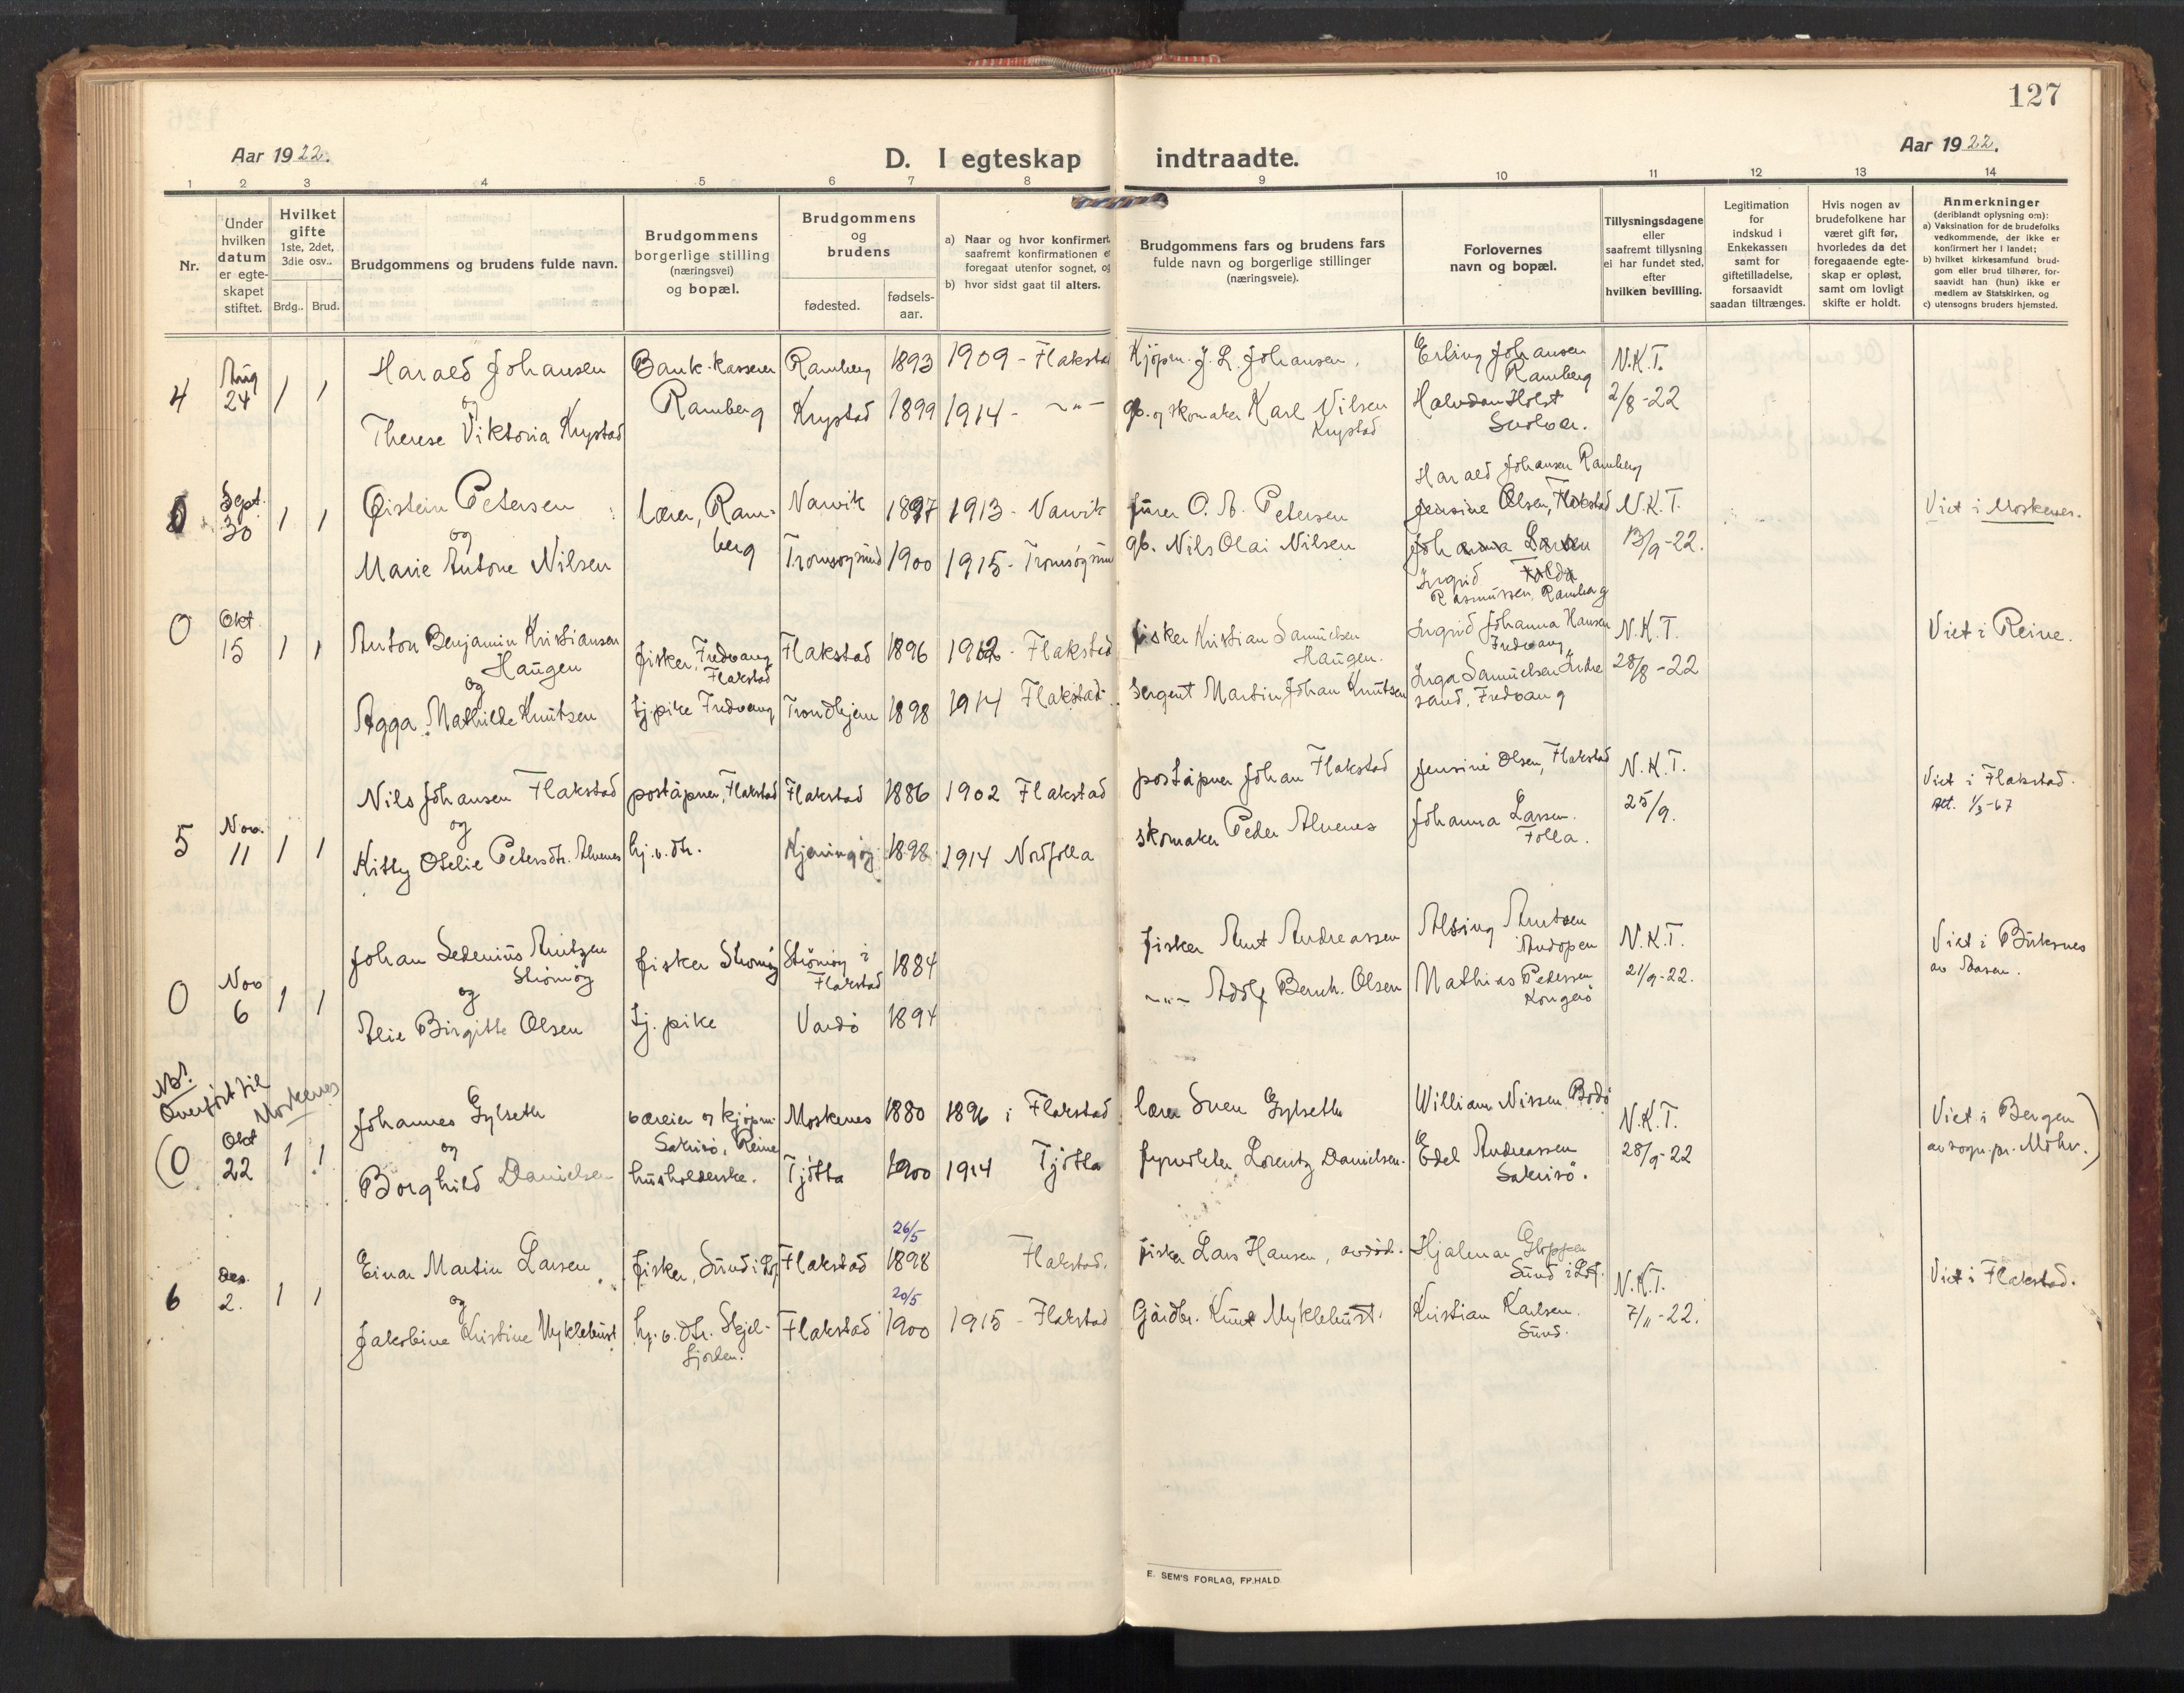 127
Aar 1922.
D. I egteskap indtraadte.
Aar 1922.
1 2 3 4 5 6 7 8 9 10 11 12 13 14
Nr.
Under
hvilken
datum
er egte-
skapet
stiftet.
Hvilket
gifte
1ste, 2det,
3die osv..
Brdg.. Brud.
Brudgommens og brudens fulde navn.
Brudgommens
borgerlige stilling
(næringsvei)
og bopæl.
Brudgommens
og
brudens
fødested.
fødsels-
aar.
a) Naar og hvor konfirmert
saafremt konfirmationen e
foregaat utenfor sognet, og
b) hvor sidst gaat til alters.
Brudgommens fars og brudens fars
fulde navn og borgerlige stillinger
(næringsveie).
Forlovernes
navn og bopæl.
Tillysningsdagene
eller
saafremt tillysning
ei har fundet sted,
efter
hvilken bevilling.
Legitimation
for
indskud i
Enkekassen
samt for
giftetilladelse,
forsaavidt
saadan tiltrænges.
Hvis nogen av
brudefolkene har
været gift før,
hvorledes da det
foregaaende egte-
skap er opløst,
samt om lovligt
skifte er holdt.
Anmerkninger
(deriblandt oplysning om):
a) Vaksination for de brudefolks
vedkommende, der ikke er
konfirmert her i landet;
b) hvilket kirkesamfund brud-
gom eller brud tilhører, for-
saavidt han (hun) ikke er
medlem av Statskirken, og
c) utensogns bruders hjemsted.
4
Aug
24
1 1
Harald Johansen
og
Therese Viktoria Krystad
Bank-kasserer
Ramberg
Ramberg 1893 1909 - Flakstad
Krystad 1899 1914 - -"-
Kjøpm. J. L. Johansen.
gb. og skomaker Karl Nilsen
Krystad
Erling Johansen
Ramberg
Halvdan Holst
Svolvær.
N.K.T.
2/8-22
0
Sept.
30
1 1
Øistein Petersen
og
Marie Antone Nilsen
lærer, Ram-
berg
Narvik 1897 1913 - Narvik
Tromsøysund 1900 1915 - Tromsøysun
fører O. A. Petersen
gb. Nils Olai Nilsen
Harald Johansen Ramberg
Jensine Olsen, Flakstad
Johanna Larsen
Folda
Ingrid
Rasmussen, Ramberg
N.K.T.
13/9-22.
Viet i Moskenes.
0
Okt.
15
1 1
Anton Benjamin Kristiansen
Haugen
og
Agga Mathilde Knutsen
fisker, Fredvang
Flakstad
tj.pike Fredvang
Flakstad 1896 1912 - Flakstad
Trondhjem 1898 1914 Flakstad.
fisker Kristian Samuelsen
Haugen.
Sergent Martin Johan Knutsen
Ingrid Johanna Hansen
Fredvang
Inga Samuelsen Indre
sand, Fredvang
N.K.T.
28/8-22
Viet i Reine.
5
Nov.
11
1 1
Nils Johansen Flakstad
og
Kitty Otelie Petersdtr. Alvenes
poståpner, Flakstad
hj.v.dtr.
Flakstad 1886 1902 Flakstad
Kjerringøy 1898 1914 Nordfolla
poståpner Johan Flakstad
skomaker Peder Alvenes
Jensine Olsen, Flakstad
Johanna Larsen.
Folla.
N.K.T.
25/9.
Viet i Flakstad.
att. 1/3-67
0
Nov
6
1 1
Johan Sedenius Arntzen
Strømøy
og
Alie Birgitte Olsen
fisker Strømøy
tj. pike
Strømøy i
Flakstad
1884
Vardø 1894
fisker Arnt Andreassen
-"- Adolf Bernh. Olsen
Alsing Arntsen
Andopen
Mathias Pedersen
Kongsø
N.K.T.
21/9-22.
Viet i Buksnes
av Aasen.
NB!
Overført til
Moskenes
(0
Okt
22
1 1
Johannes Gylseth
og
Borghild Danielsen
væreier og kjøpm.
Sakrisø, Reine
husholderske.
Moskenes 1880 1896 i Flakstad
Tjøtta 1900 1914 Tjøtta
lærer Sven Gylseth
fyrvokter Lorentz Danielsen.
William Nissen Bodø
Edel Andreassen
Sakrisø.
N.K.T.
28/9-22
Viet i Bergen
av sogn.pr. Møhr.)
6
Des.
2.
1 1
Einar Martin Larsen
og
Jakobine Kristine Myklebust
fisker, Sund i Lof.
hj.v.dtr. Skjel-
fjorden.
Flakstad 26/5 1898 Flakstad.
Flakstad 20/5 1900 1915 - Flakstad
fisker Lars Hansen, avdød.
Gårdbr. Knut Myklebust.
Hjalmar Gloppen
Sund i Lof.
Kristian Karlsen.
Sund.
N.K.T.
7/11-22.
Viet i Flakstad.
E. SEM'S FORLAG, FR.HALD.